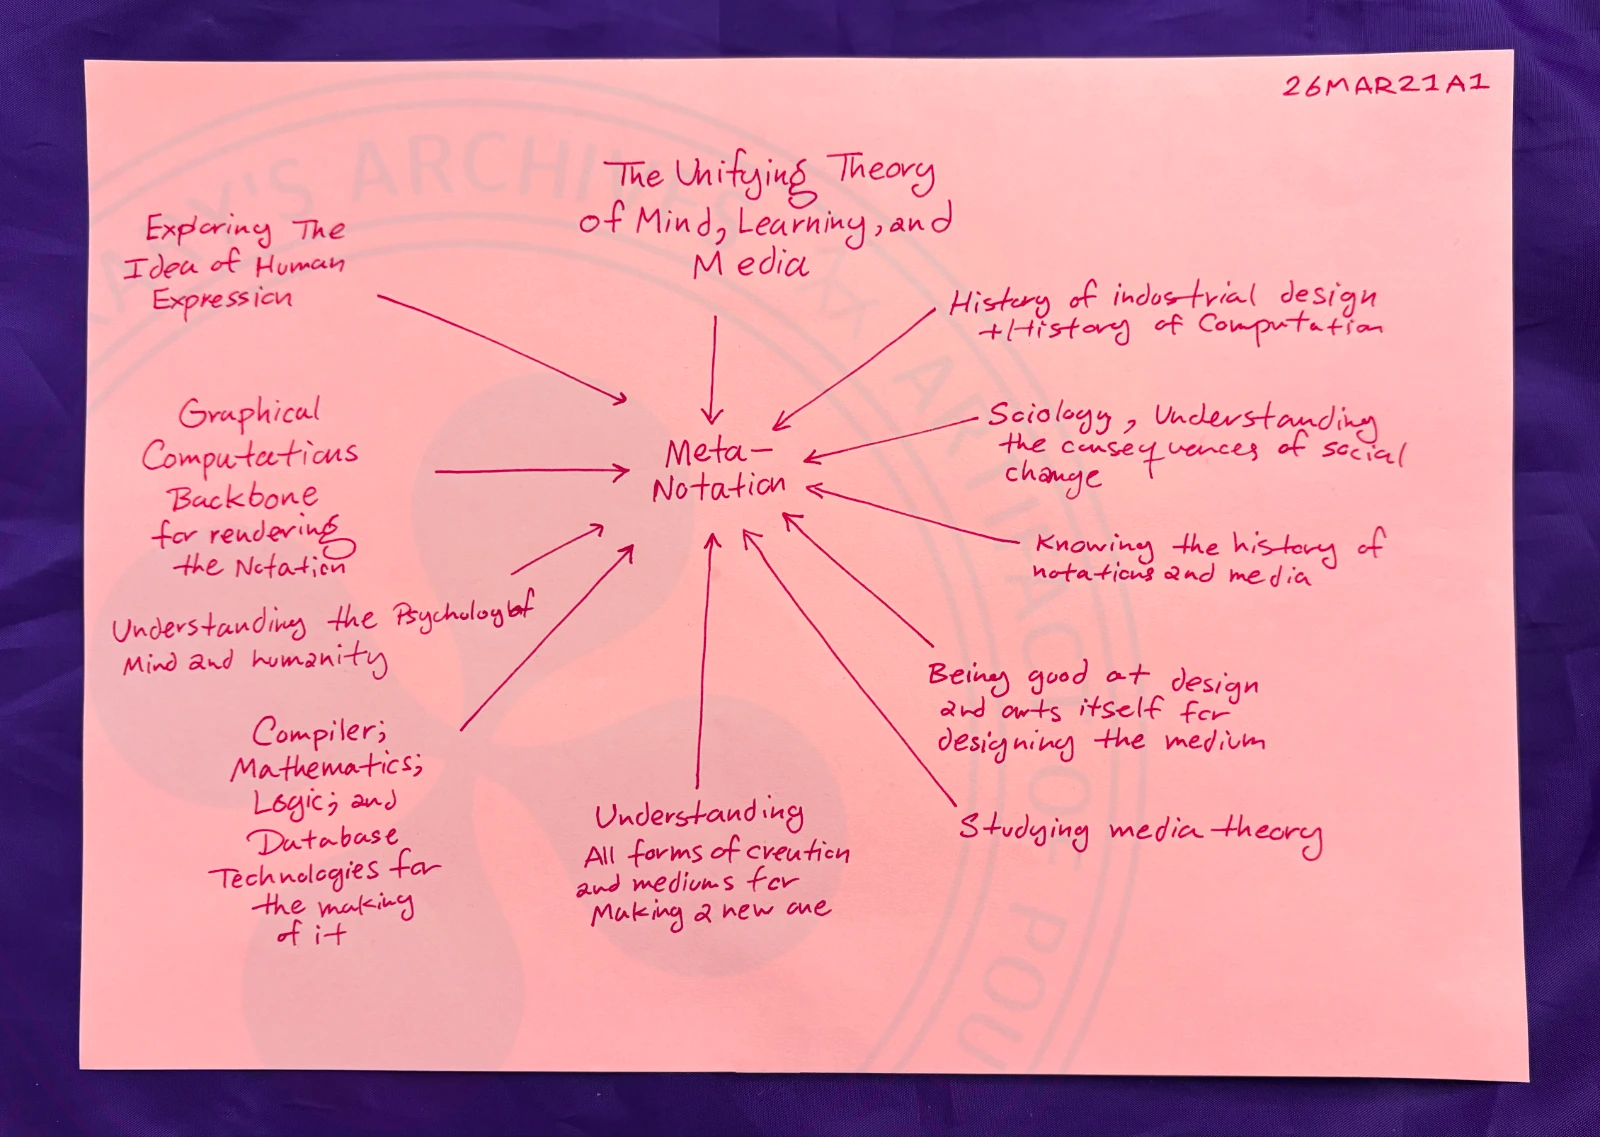 26MAR21A1
The Unifying Theory
of Mind, Learning, and
Media
Exploring The
Idea of Human
Expression
History of industrial design
+History of Computation
Graphical
Computations
Backbone
for rendering
the Notation
Meta-
Notation
Sciology, Understanding
the consequences of social
change
Knowing the history of
notations and media
Understanding the Psychology of
Mind and humanity
Being good at design
and arts itself for
designing the medium
Compiler;
Mathematics;
Logic; and
Database
Technologies for
the making
of it
Understanding
All forms of creation
and mediums for
Making a new one
Studying media theory